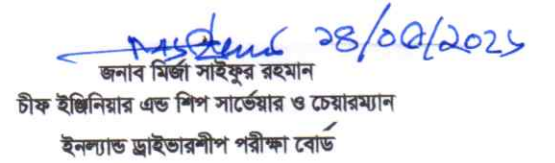 জনাব মির্জা সাইফুর রহমান
চীফ ইঞ্জিনিয়ার এন্ড শিপ সার্ভেয়ার ও চেয়ারম্যান
ইনল্যান্ড ড্রাইভারশীপ পরীক্ষা বোর্ড